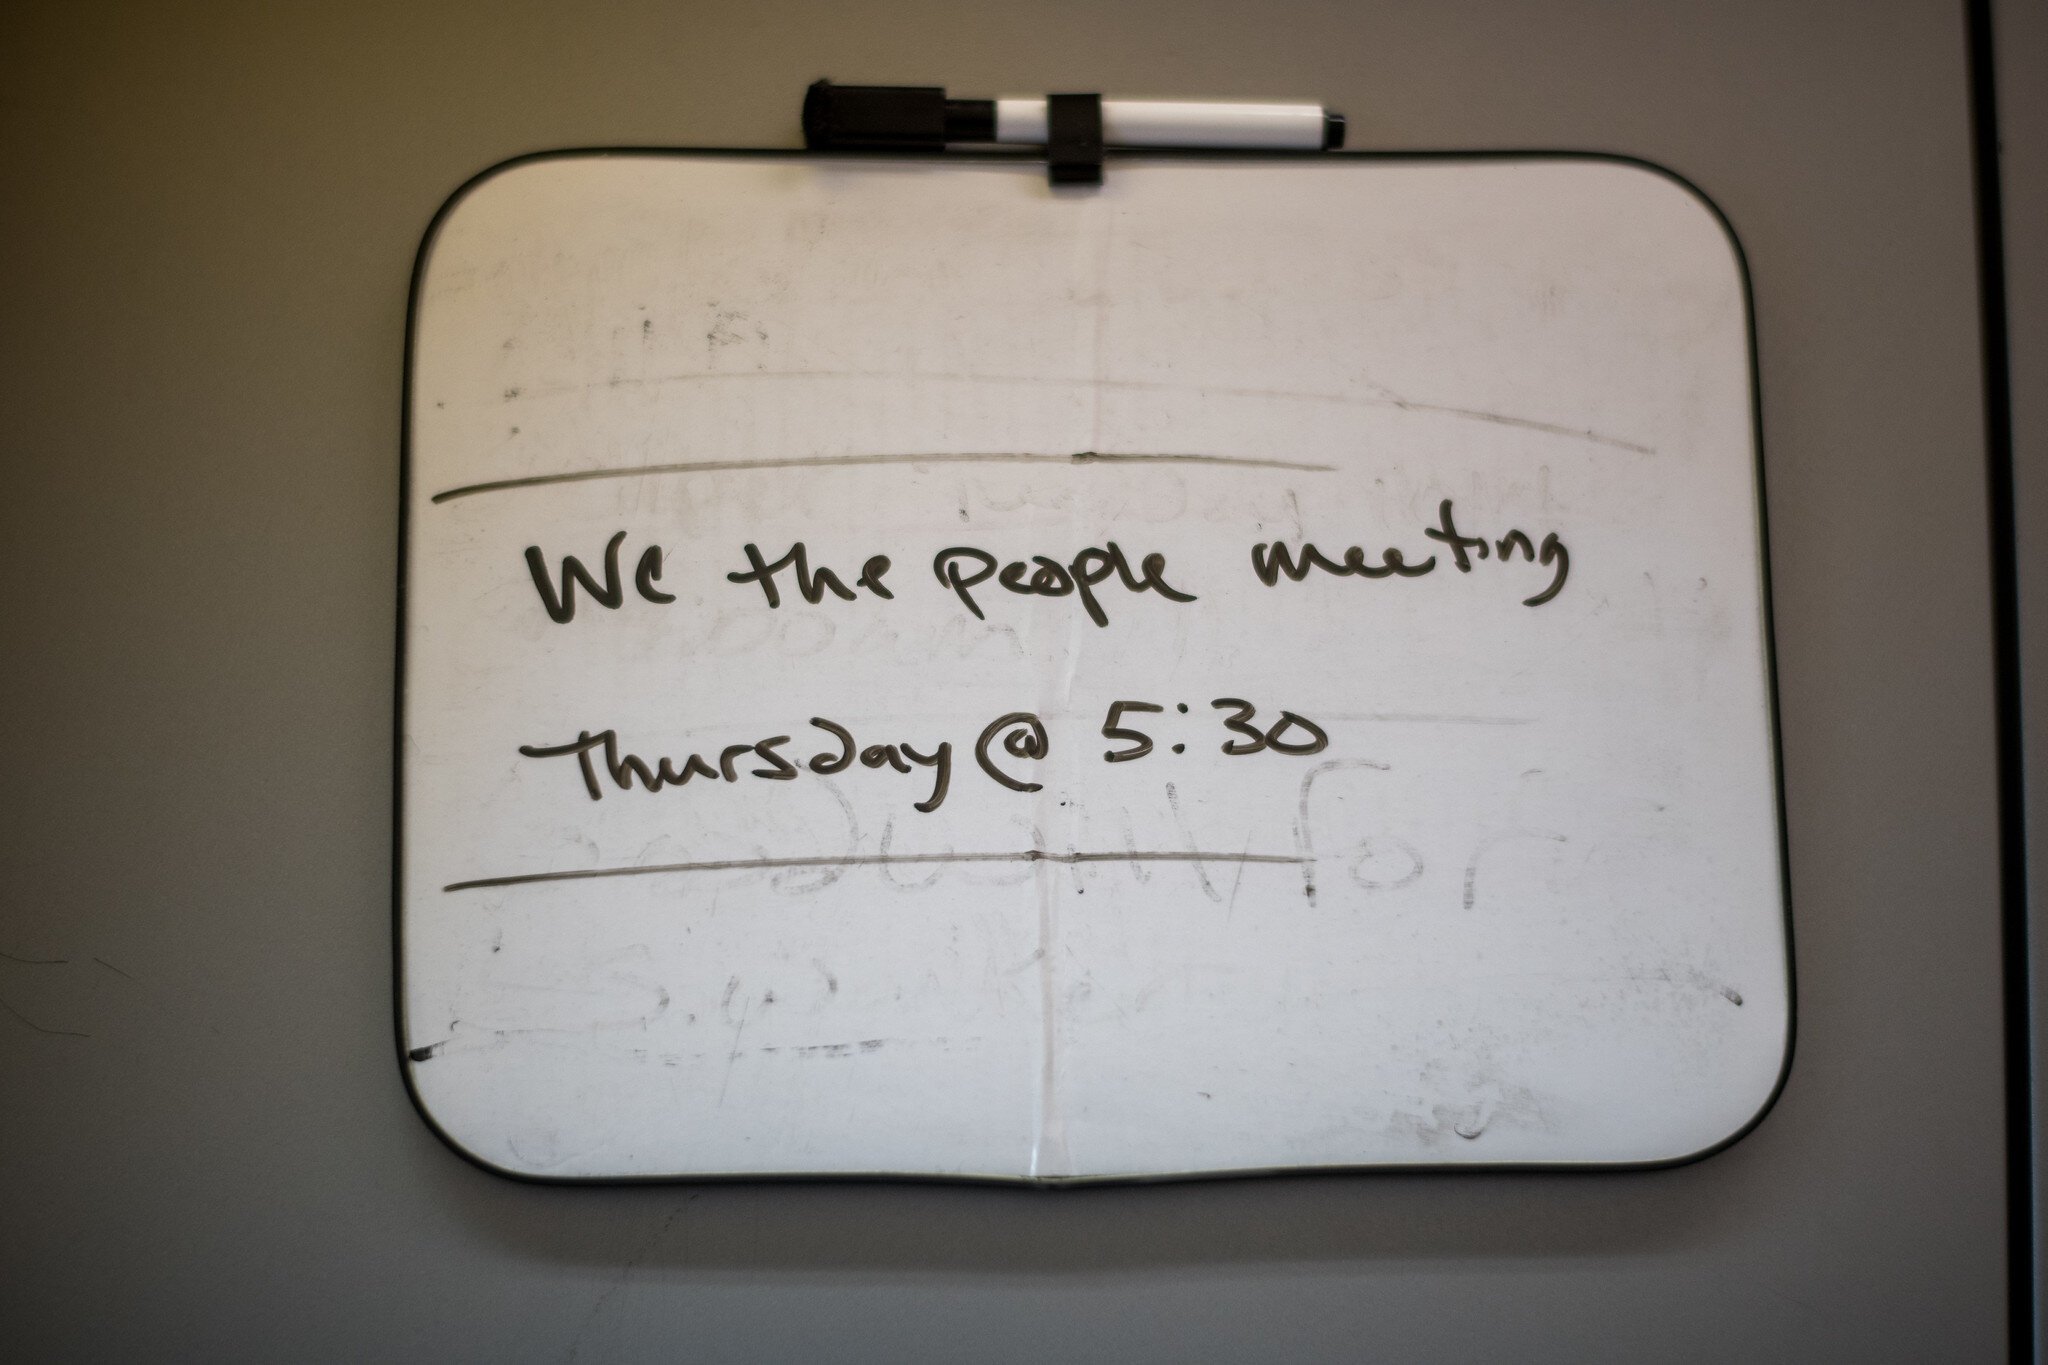 We the people meeting
Thursday @ 5:30